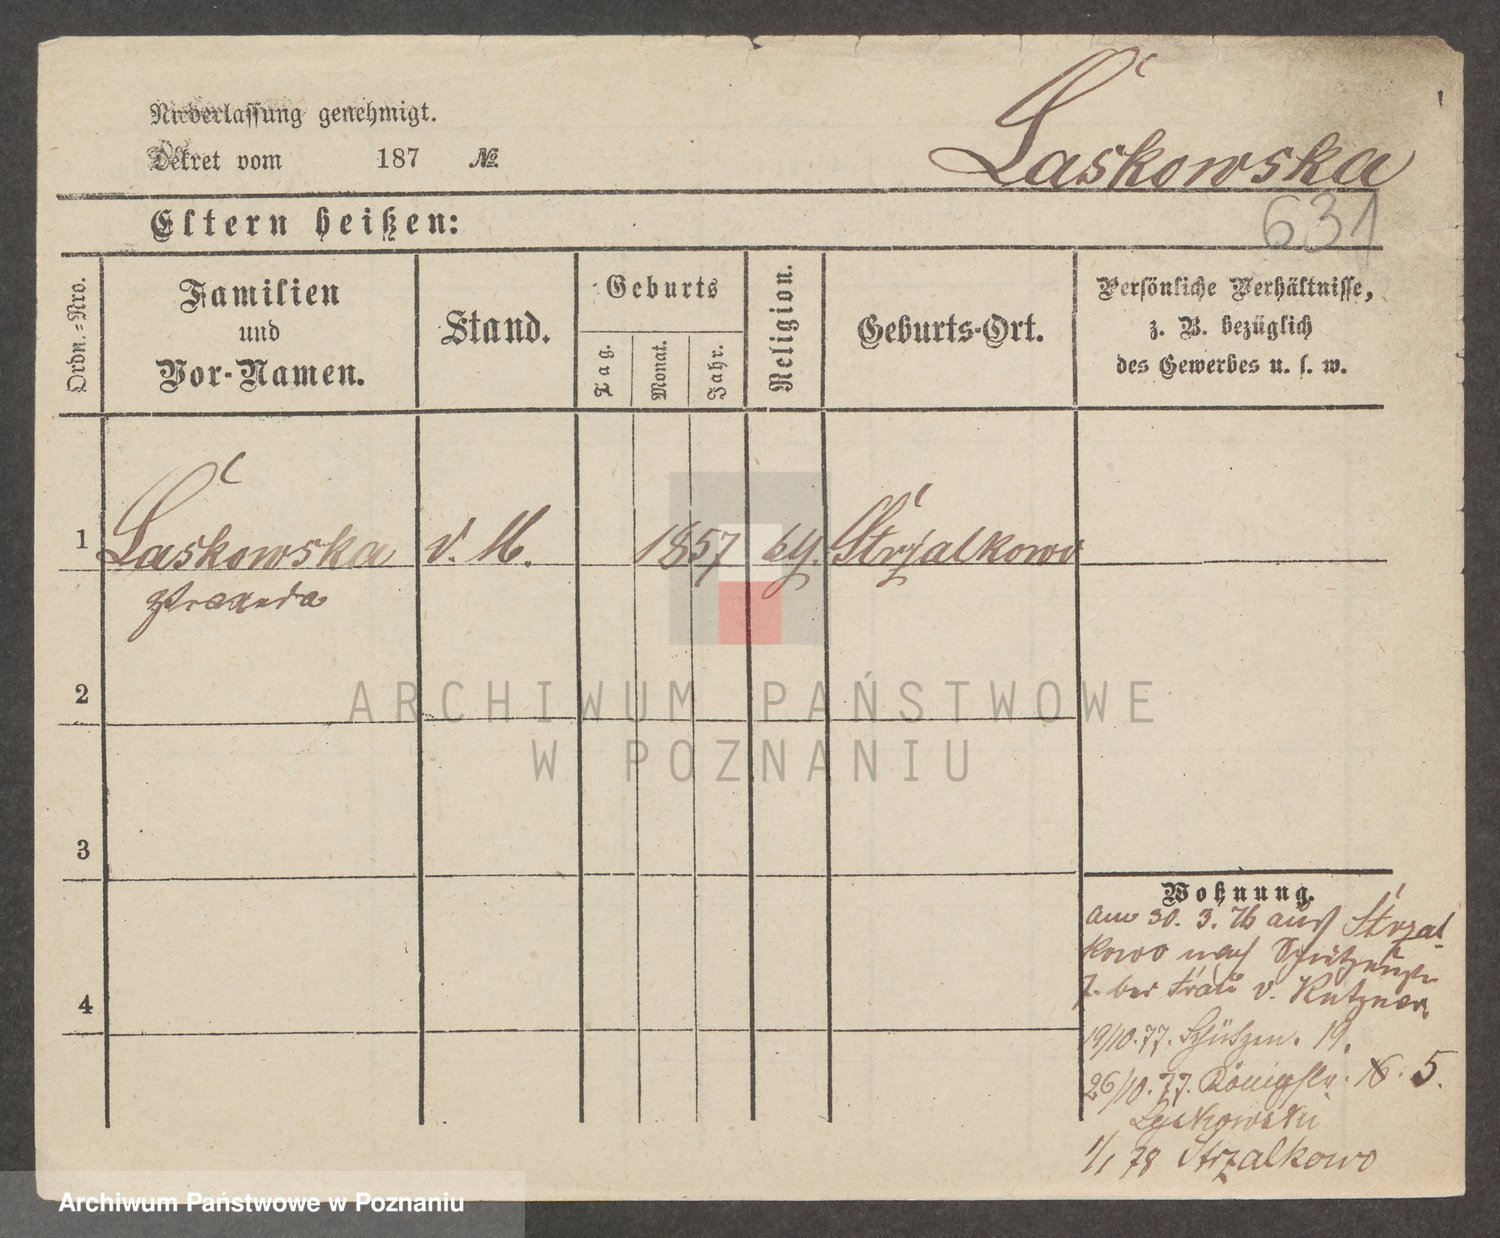 Niederlassung genehmigt.
Dekret vom 187 №
Laskowska
631
Eltern heißen:
Ordn.-Nro.
Familien
und
Vor-Namen.
Stand.
Geburts
Tag.
Monat.
Jahr.
Religion.
Geburts-Ort.
Persönliche Verhältnisse,
z. B. bezüglich
des Gewerbes u. s. w.
1 Laskowska v. M. 1857 Strzalkowo
2
3
4
ARCHIWUM PAŃSTWOWE
W POZNANIU
Wohnung.
am 30. 3. 76 aus Strzal-
kowo nach
7. bei Frau v. Kutzner
19/10. 77. Schützen. 19.
26/10. 77. Königstr. 5.
Laskowski
1/1 78 Strzalkowo
Archiwum Państwowe w Poznaniu